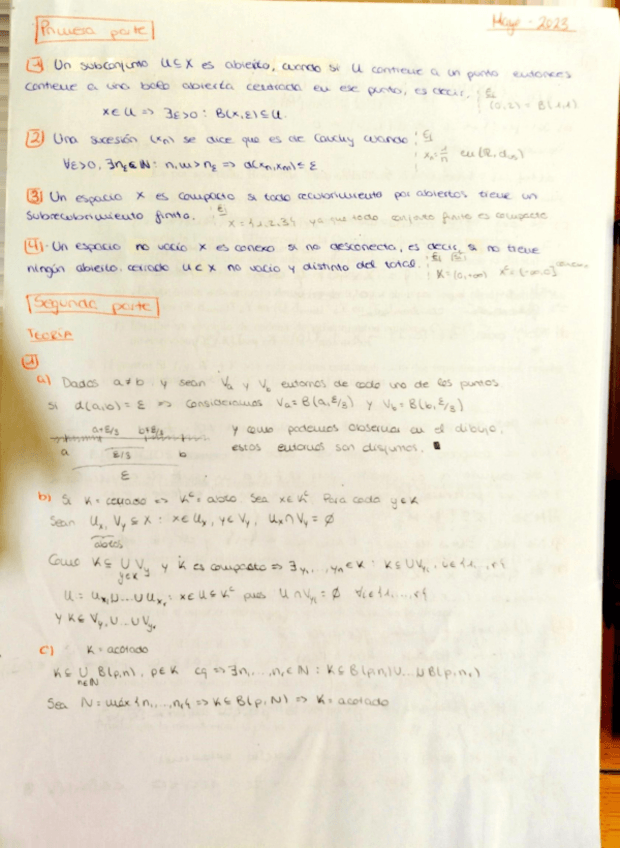 Primera parte
Mayo - 2023
1 Un subconjunto U⊆X es abierto, cuando si U contiene a un punto entonces
contiene a una bola abierta centrada en ese punto, es decir, Ej
x∈U => ∃ε>0 : B(x,ε)⊆U. (0,2) = B(1,1)
2 Una sucesión (xn) se dice que es de Cauchy cuando Ej
∀ε>0, ∃nε∈N : n,m>nε => d(xn,xm)≤ε xn=1/n en (R,du)
3 Un espacio X es compacto si todo recubrimiento por abiertos tiene un
subrecubrimiento finito. Ej X={1,2,3} ya que todo conjunto finito es compacto
4 - Un espacio no vacío X es conexo si no desconecta, es decir, si no tiene
ningún abierto, cerrado U⊂X no vacío y distinto del total. Ej K=(0,+∞)
Segunda parte
TEORÍA
1
a) Dados a≠b y sean Va y Vb entornos de cada uno de los puntos
Si d(a,b) = ε => consideramos Va=B(a,ε/3) y Vb=B(b,ε/3)
a+ε/3 b+ε/3 y como podemos observar en el dibujo,
a ε/3 b estos entornos son disjuntos.
ε
b) Si K=cerrado => Kᶜ=abto Sea x∈Kᶜ Para cada y∈K
Sean Ux, Vy⊆X : x∈Ux, y∈Vy, Ux∩Vy=∅
abtos
Como K⊆ ∪ Vy y K es compacto => ∃y1,...,yn∈K : K⊆∪Vyi, i∈{1,...,r}
y∈K
U = Ux1∪...∪Uxr : x∈U⊆Kᶜ pues U∩Vyi=∅ ∀i∈{1,...,r}
y K⊆Vy1∪...∪Vyr
c) K=acotado
K⊆ ∪ B(p,n), p∈K cq => ∃n1,...,nr∈N : K⊆B(p,n1)∪...∪B(p,nr)
n∈N
Sea N=máx{n1,...,nr} => K⊆B(p,N) => K=acotado